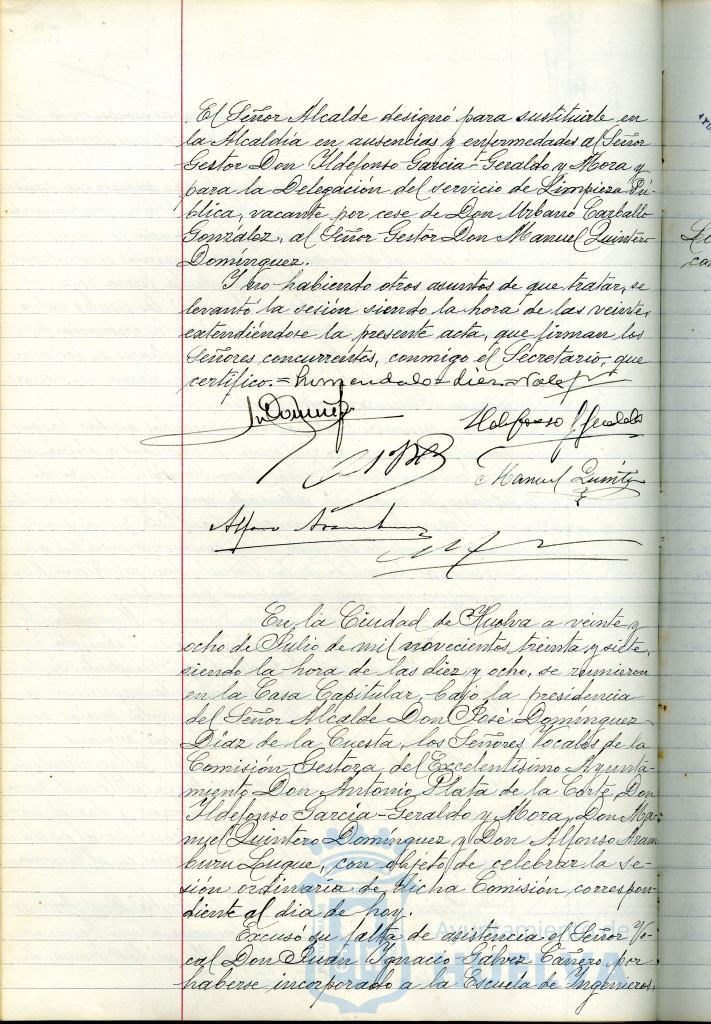 El Señor Alcalde designó para sustituirle en
la Alcaldía en ausencias y enfermedades al Señor
Gestor Don Ildefonso Garcia-Geraldo y Mora y
para la Delegación del servicio de Limpieza Pú-
blica, vacante por cese de Don Urbano Carballo
González, al Señor Gestor Don Manuel Quintero
Domínguez.
Y no habiendo otros asuntos de que tratar, se
levantó la sesión siendo la hora de las veinte,
extendiéndose la presente acta, que firman los
Señores concurrentes, conmigo el Secretario, que
certifico.=
Ildefonso G. Geraldo
Manuel Quintero
Alfonso Aramburu
En la Ciudad de Huelva a veinte y
ocho de Julio de mil novecientos treinta y siete,
siendo la hora de las diez y ocho, se reunieron
en la Casa Capitular, bajo la presidencia
del Señor Alcalde Don José Domínguez
Díaz de la Cuesta, los Señores Vocales de la
Comisión Gestora del Excelentísimo Ayunta-
miento Don Antonio Plata de la Corte, Don
Ildefonso García-Geraldo y Mora, Don Ma-
nuel Quintero Domínguez y Don Alfonso Aram
buru Luque, con objeto de celebrar la se-
sión ordinaria de dicha Comisión correspon-
diente al dia de hoy.
Excusó su falta de asistencia el Señor Vo-
cal Don Juan Ignacio Gálvez Cañero por
haberse incorporado a la Escuela de Ingenieros,
Ayuntamiento de
HUELVA